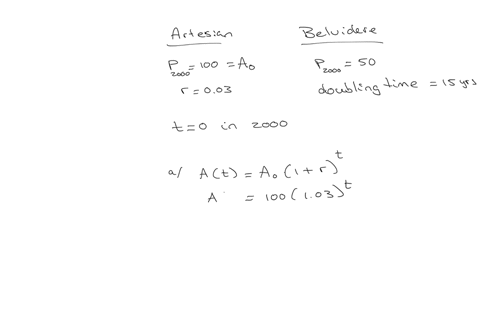 Artesian Belvidere
P₂₀₀₀ = 100 = A₀ P₂₀₀₀ = 50
r = 0.03 doubling time = 15 yrs
t = 0 in 2000
a/ A(t) = A₀ (1 + r)^t
A = 100 (1.03)^t